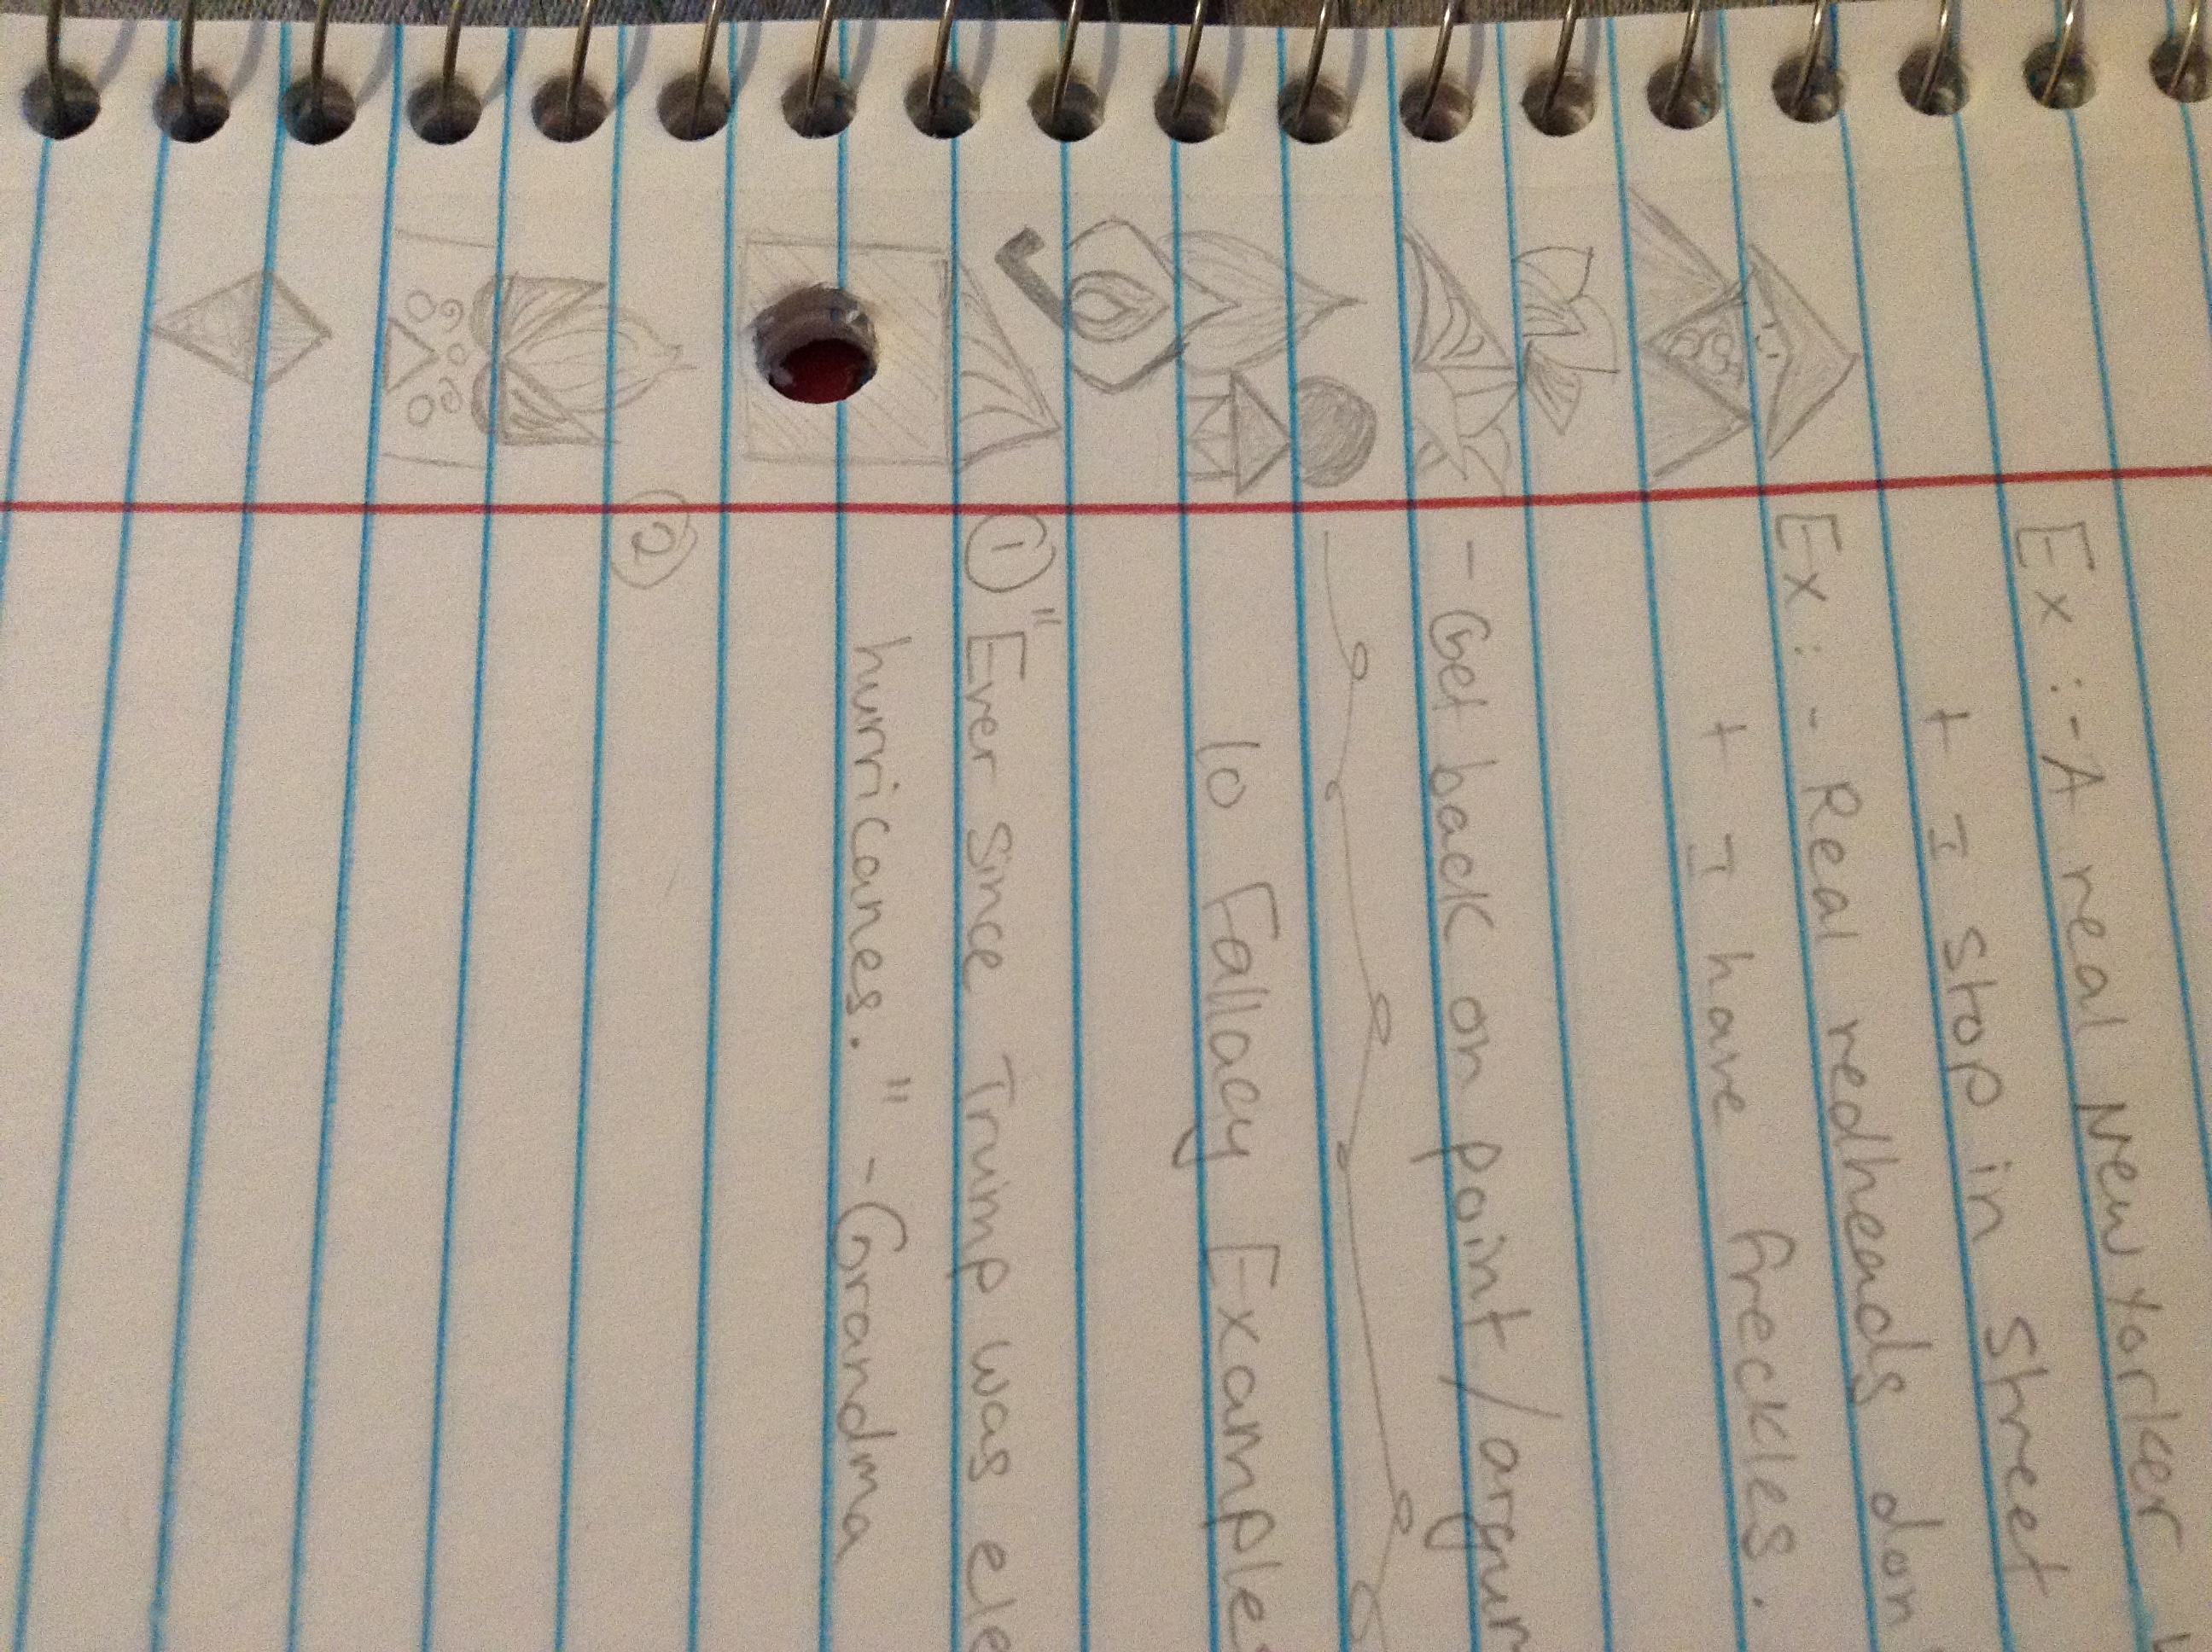 Ex : - A real New Yorker
+ I stop in street
Ex : - Real redheads don
+ I have freckles.
- Get back on point / argum
10 Fallacy Examples
① "Ever since Trump was ele
hurricanes." - Grandma
②